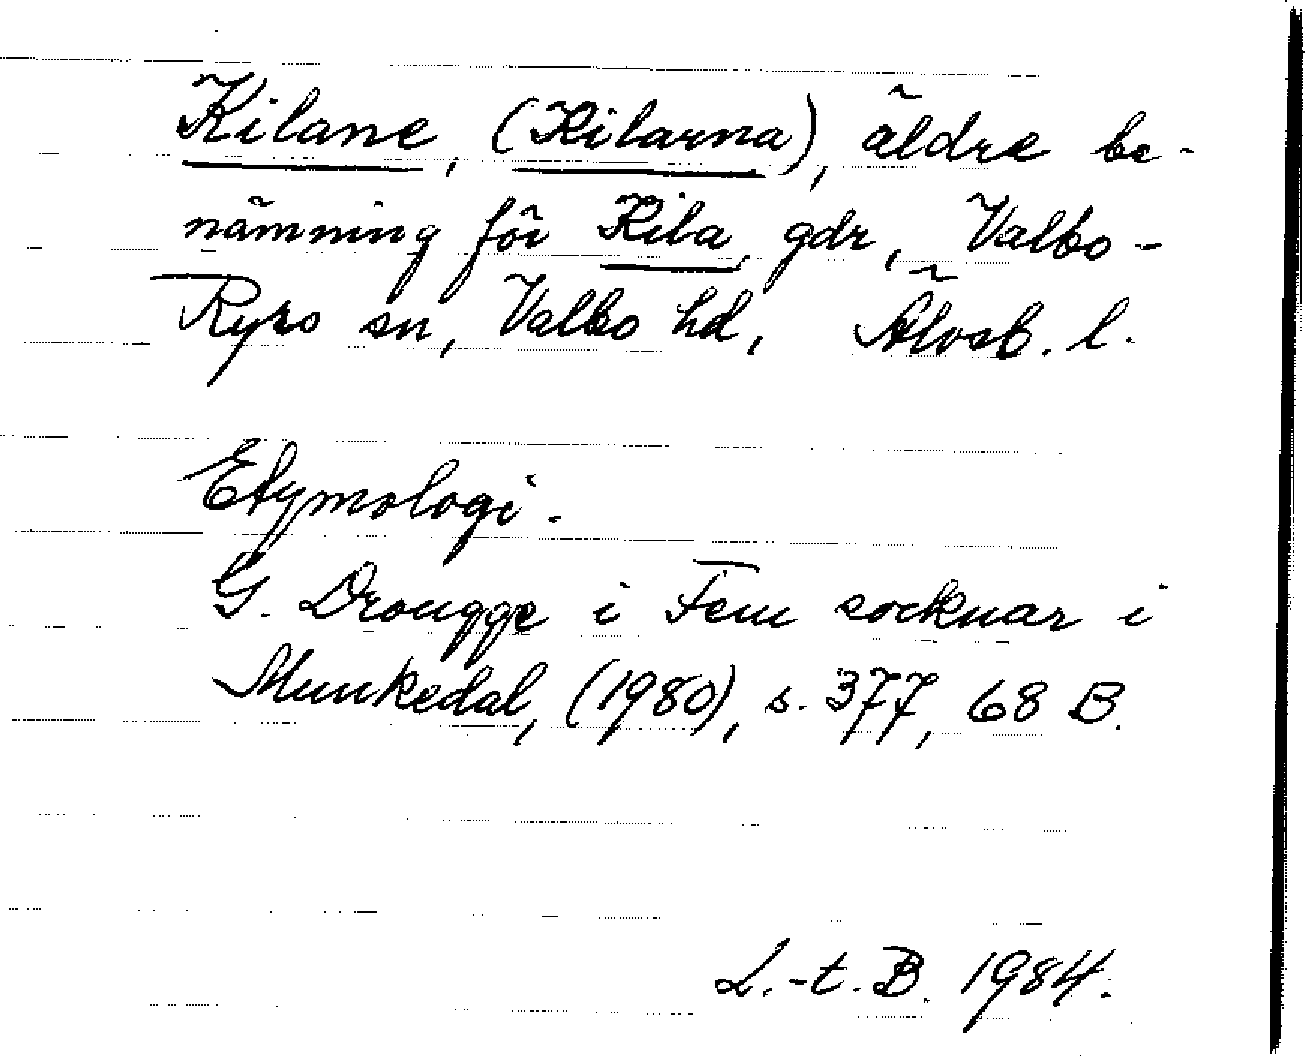 Kilane, (Kilarna), äldre be-
nämning för Kila gdr, Valbo-
Ryrs sn, Valbo hd, Älvsb. l.
Etymologi.
G. Drougge i Fem socknar i
Munkedal, (1980), s. 377, 68 B.
L.-t. B. 1984.